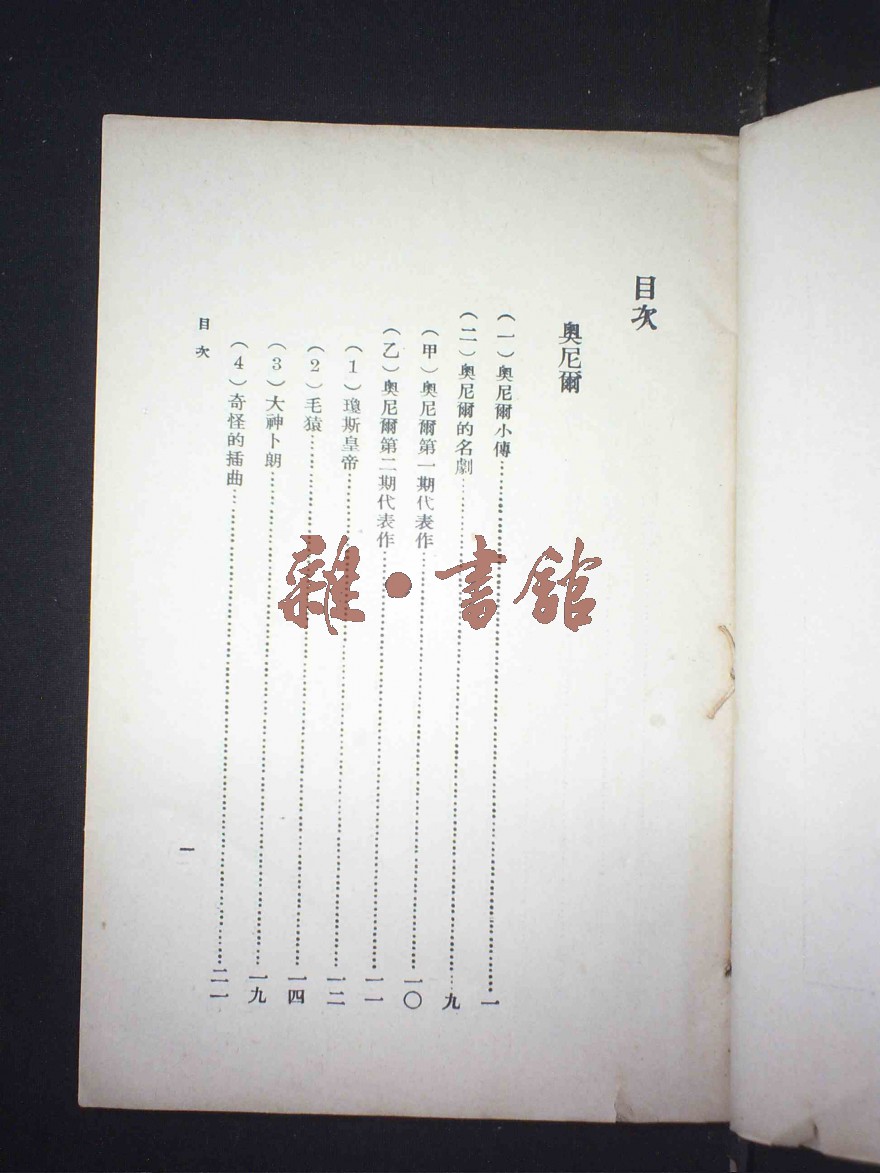 目次
奧尼爾
（一）奧尼爾小傳……一
（二）奧尼爾的名劇……九
（甲）奧尼爾第一期代表作……一〇
（乙）奧尼爾第二期代表作……一一
（1）瓊斯皇帝……一二
（2）毛猿……一四
（3）大神卜朗……一九
（4）奇怪的插曲……二一
目次
一
雜・書館